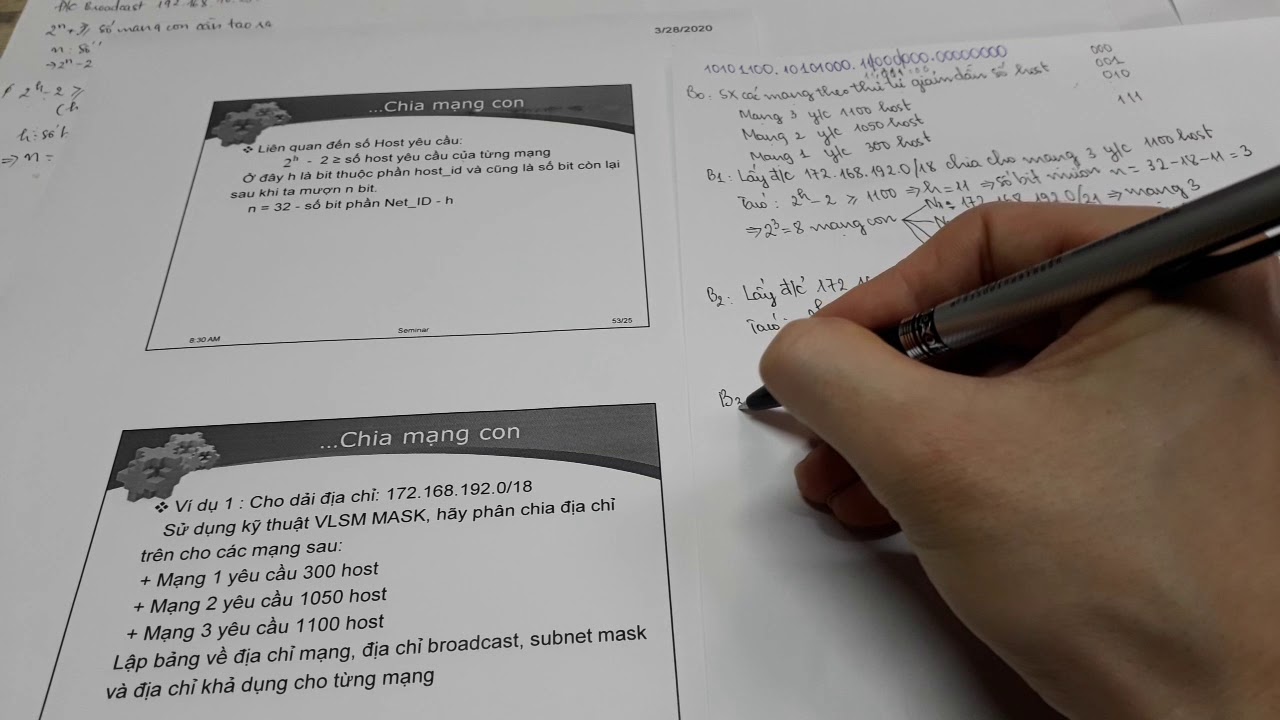 Đ/c Broadcast 192.168.
2ⁿ + 3 ≥ số mạng con cần tạo ra
n: số
⇒ 2ⁿ - 2
2ʰ - 2 ≥
(h
h: số b
⇒ n =
3/28/2020
...Chia mạng con
❖ Liên quan đến số Host yêu cầu:
2ʰ - 2 ≥ số host yêu cầu của từng mạng
Ở đây h là bit thuộc phần host_id và cũng là số bit còn lại
sau khi ta mượn n bit.
n = 32 - số bit phần Net_ID - h
8:30 AM
Seminar
53/25
...Chia mạng con
❖ Ví dụ 1 : Cho dải địa chỉ: 172.168.192.0/18
Sử dụng kỹ thuật VLSM MASK, hãy phân chia địa chỉ
trên cho các mạng sau:
+ Mạng 1 yêu cầu 300 host
+ Mạng 2 yêu cầu 1050 host
+ Mạng 3 yêu cầu 1100 host
Lập bảng về địa chỉ mạng, địa chỉ broadcast, subnet mask
và địa chỉ khả dụng cho từng mạng
10101100.10101000.11000000.00000000
000
001
010
111
B0: SX các mạng theo thứ tự giảm dần số host
Mạng 3 y/c 1100 host
Mạng 2 y/c 1050 host
Mạng 1 y/c 300 host
B1: Lấy đ/c 172.168.192.0/18 chia cho mạng 3 y/c 1100 host
Ta có: 2ʰ - 2 ≥ 1100 ⇒ h = 11 ⇒ số bit mượn n = 32 - 18 - 11 = 3
⇒ 2³ = 8 mạng con
N1 = 172.168.192.0/21 ⇒ mạng 3
B2: Lấy đ/c 172.1
Ta có:
B3